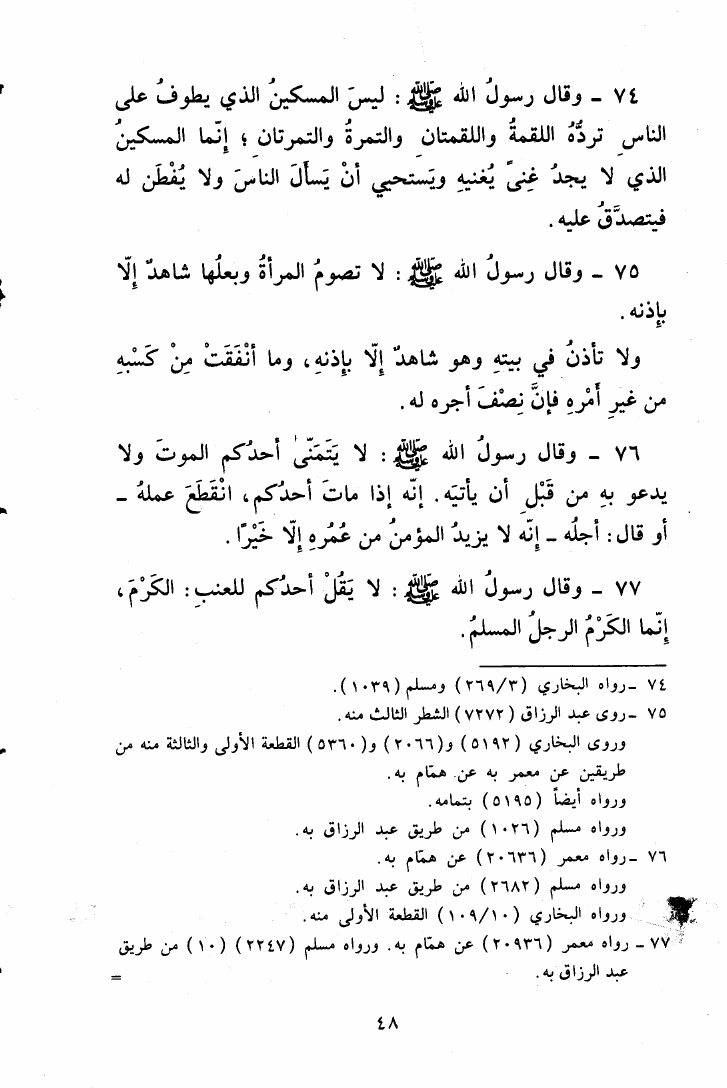 ٧٤ ـ وقال رسولُ الله ﷺ : ليسَ المسكينُ الذي يطوفُ على
الناسِ تردُّهُ اللقمةُ واللقمتانِ والتمرةُ والتمرتانِ ؛ إنَّما المسكينُ
الذي لا يجدُ غِنىً يُغنيهِ ويَستحيي أنْ يَسألَ الناسَ ولا يُفْطَن له
فيتصدَّقُ عليه.
٧٥ ـ وقال رسولُ الله ﷺ : لا تصومُ المرأةُ وبعلُها شاهدٌ إلَّا
بإذنه.
ولا تأذنُ في بيتهِ وهو شاهدٌ إلَّا بإذنهِ، وما أنْفَقَتْ مِنْ كَسْبِهِ
من غيرِ أَمْرِهِ فإنَّ نِصْفَ أجره له.
٧٦ ـ وقال رسولُ الله ﷺ : لا يَتَمَنَّىٰ أحدُكم الموتَ ولا
يدعو بهِ من قَبْلِ أن يأتيَه. إنَّه إذا ماتَ أحدُكم، انْقَطَعَ عملهُ ـ
أو قال: أجلُه ـ إنَّه لا يزيدُ المؤمنُ من عُمُرهِ إلَّا خَيْرًا.
٧٧ ـ وقال رسولُ الله ﷺ : لا يَقُلْ أحدُكم للعنبِ: الكَرْمَ،
إنَّما الكَرْمُ الرجلُ المسلمُ.
٧٤ ـ رواه البخاري (٢٦٩/٣) ومسلم (١٠٣٩).
٧٥ ـ روى عبد الرزاق (٧٢٧٢) الشطر الثالث منه.
وروى البخاري (٥١٩٢) و(٢٠٦٦) و(٥٣٦٠) القطعة الأولى والثالثة منه من
طريقين عن معمر به عن همّام به.
ورواه أيضاً (٥١٩٥) بتمامه.
ورواه مسلم (١٠٢٦) من طريق عبد الرزاق به.
٧٦ ـ رواه معمر (٢٠٦٣٦) عن همّام به.
ورواه مسلم (٢٦٨٢) من طريق عبد الرزاق به.
ورواه البخاري (١٠٩/١٠) القطعة الأولى منه.
٧٧ ـ رواه معمر (٢٠٩٣٦) عن همّام به. ورواه مسلم (٢٢٤٧) (١٠) من طريق
عبد الرزاق به.
=
٤٨